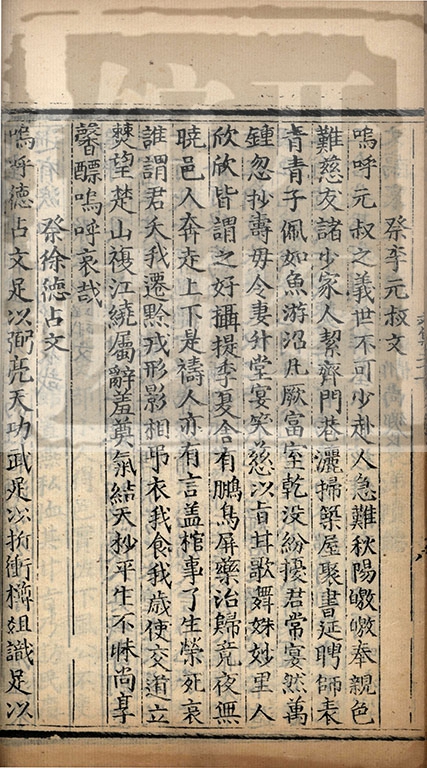 祭李元叔文
嗚呼元叔之義世不可少赴人急難秋陽皦皦奉親色
難慈友諸少家人絜齊門巷灑掃築屋聚書延聘師表
青青子佩如魚游沼凡厥富室乾没紛擾君常宴然萬
鍾忽抄壽毋令妻升堂宴笑慈以旨甘歌舞姝妙里人
欣欣皆謂之好攝提季夏舍有鵬鳥屏藥治歸竟夜無
曉邑人奔走上下是禱人亦有言盖棺事了生榮死哀
誰謂君夭我遷黔戎形影相弔衣我食我歳使交道立
㷊望楚山複江繞屬辭羞奠氣結天杪平生不昧尚享
馨醥嗚呼哀哉
祭徐德占文
嗚呼德占文足以弼亮天功武足以折衝樽俎識足以